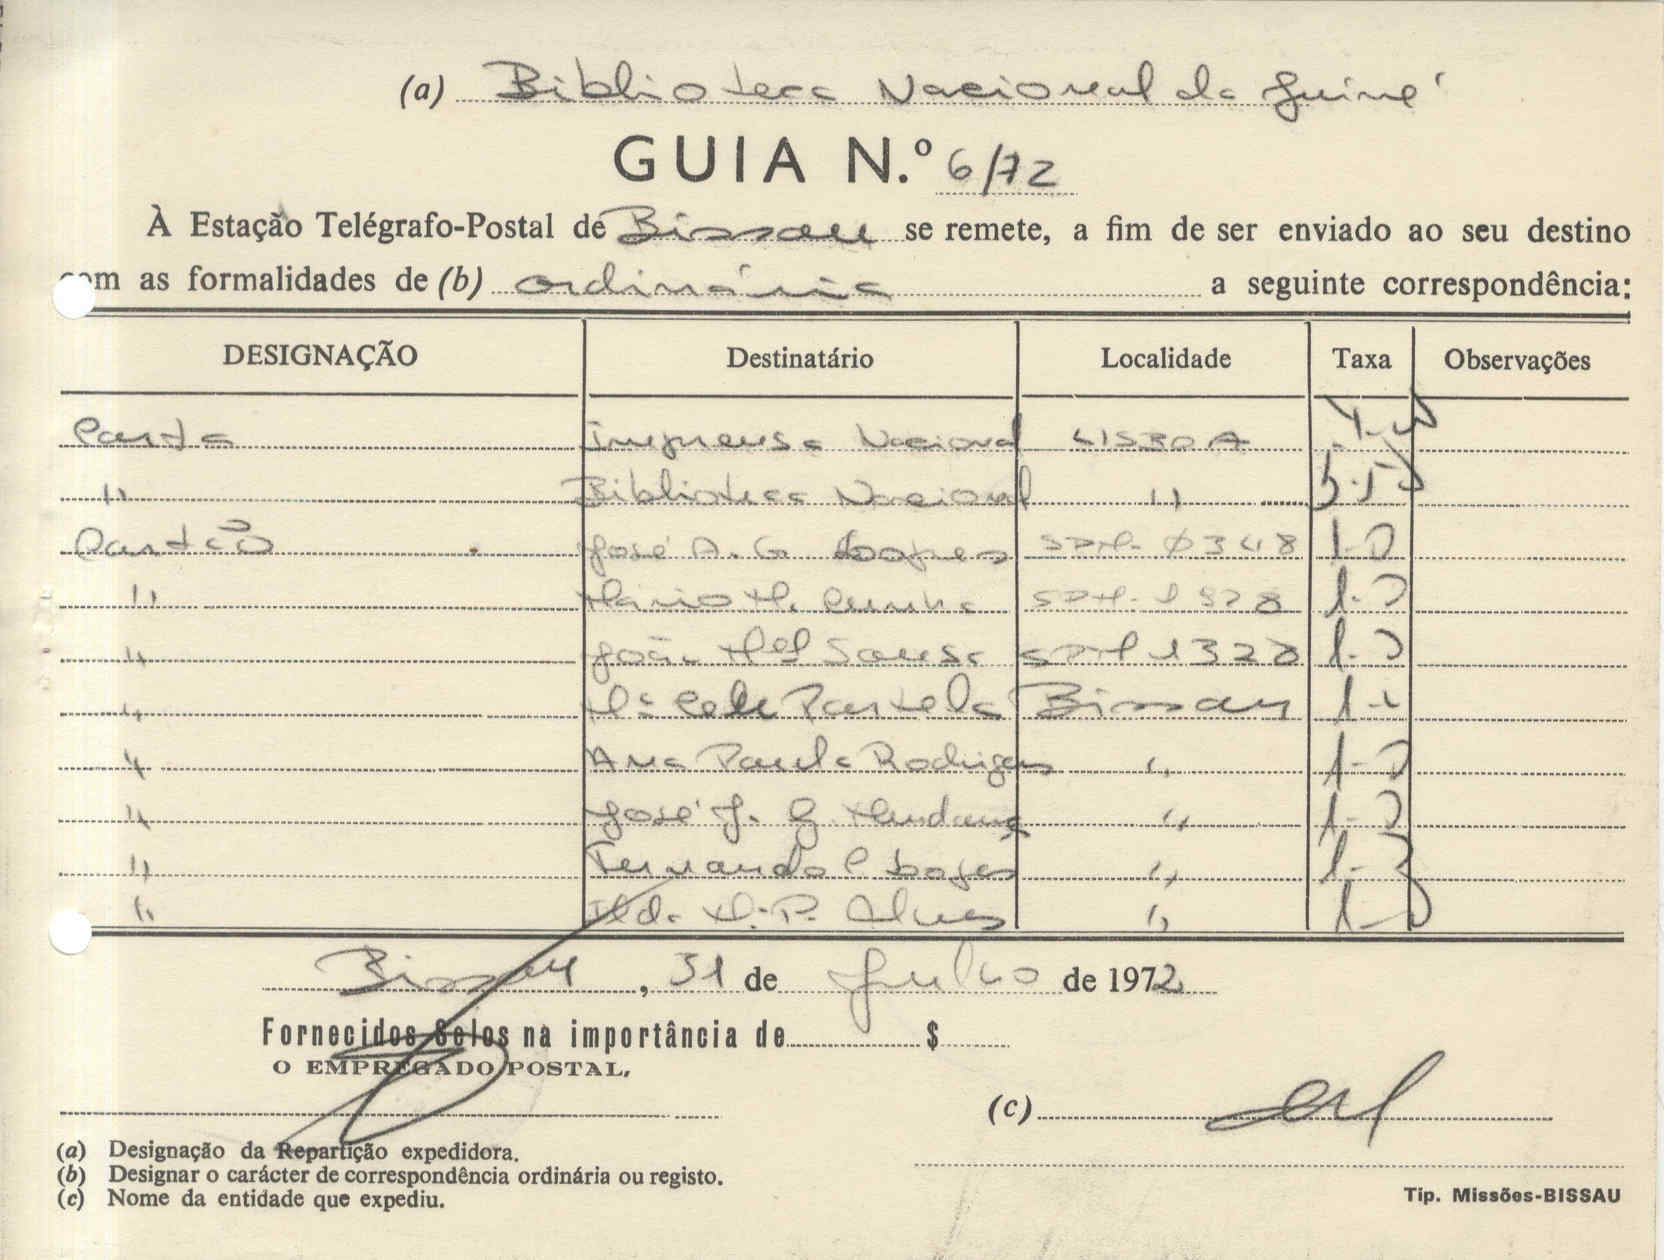 (a) Biblioteca Nacional da Guiné
GUIA N.º 6/72
À Estação Telégrafo-Postal de Bissau se remete, a fim de ser enviado ao seu destino
com as formalidades de (b) ordinária a seguinte correspondência:
DESIGNAÇÃO Destinatário Localidade Taxa Observações
Carta Imprensa Nacional LISBOA
" Biblioteca Nacional "
Cartão José A. G. Lopes SPM-0348 1-0
" Mário M. Cunha SPM- 1-0
" João Mel Sousa SPM 1328 1-0
" Mª Cele Portela Bissau
" Ana Paula Rodrigues " 1-0
" José J. G. "  1-0
" Fernando C "
" Ilda M. P. Alves "
Bissau, 31 de Julho de 1972
Fornecidos Selos na importância de $
O EMPREGADO POSTAL,
(c)
(a) Designação da Repartição expedidora.
(b) Designar o carácter de correspondência ordinária ou registo.
(c) Nome da entidade que expediu.
Tip. Missões-BISSAU